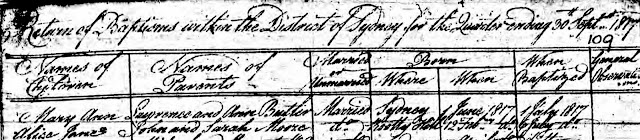 Return of Baptisms within the District of Sydney for the Quarter ending 30th Septr 1817
109
Names of Children Names of Parents Married or Unmarried Born Where When When Baptized General Observatns
Mary Ann Lawrence and Ann Butler Married Sydney 1 June 1817 1 July 1817
Alice Jane John and Sarah Moore do do